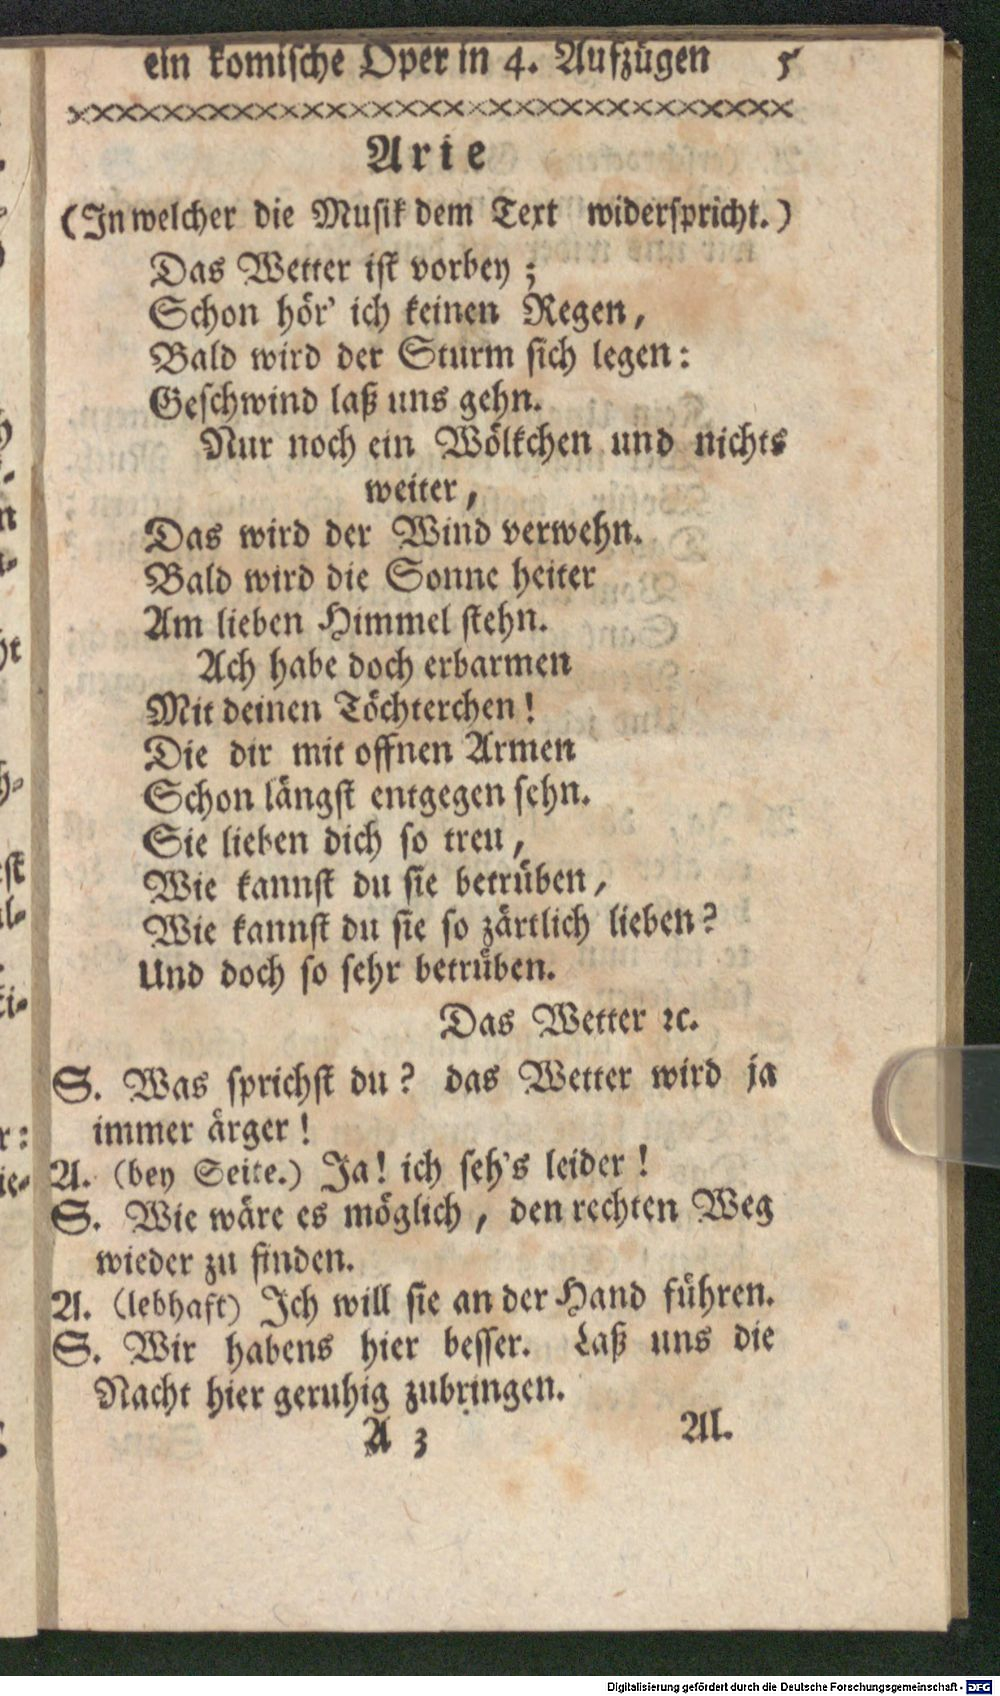 ein komische Oper in 4. Aufzügen 5
Arie
(In welcher die Musik dem Text widerspricht.)
Das Wetter ist vorbey;
Schon hör' ich keinen Regen,
Bald wird der Sturm sich legen:
Geschwind laß uns gehn.
Nur noch ein Wölkchen und nichts
weiter,
Das wird der Wind verwehn.
Bald wird die Sonne heiter
Am lieben Himmel stehn.
Ach habe doch erbarmen
Mit deinen Töchterchen!
Die dir mit offnen Armen
Schon längst entgegen sehn.
Sie lieben dich so treu,
Wie kannst du sie betrüben,
Wie kannst du sie so zärtlich lieben?
Und doch so sehr betrüben.
Das Wetter ꝛc.
S. Was sprichst du? das Wetter wird ja
immer ärger!
A. (bey Seite.) Ja! ich seh's leider!
S. Wie wäre es möglich, den rechten Weg
wieder zu finden.
A. (lebhaft) Ich will sie an der Hand führen.
S. Wir habens hier besser. Laß uns die
Nacht hier geruhig zubringen.
A 3 Al.
Digitalisierung gefördert durch die Deutsche Forschungsgemeinschaft - DFG